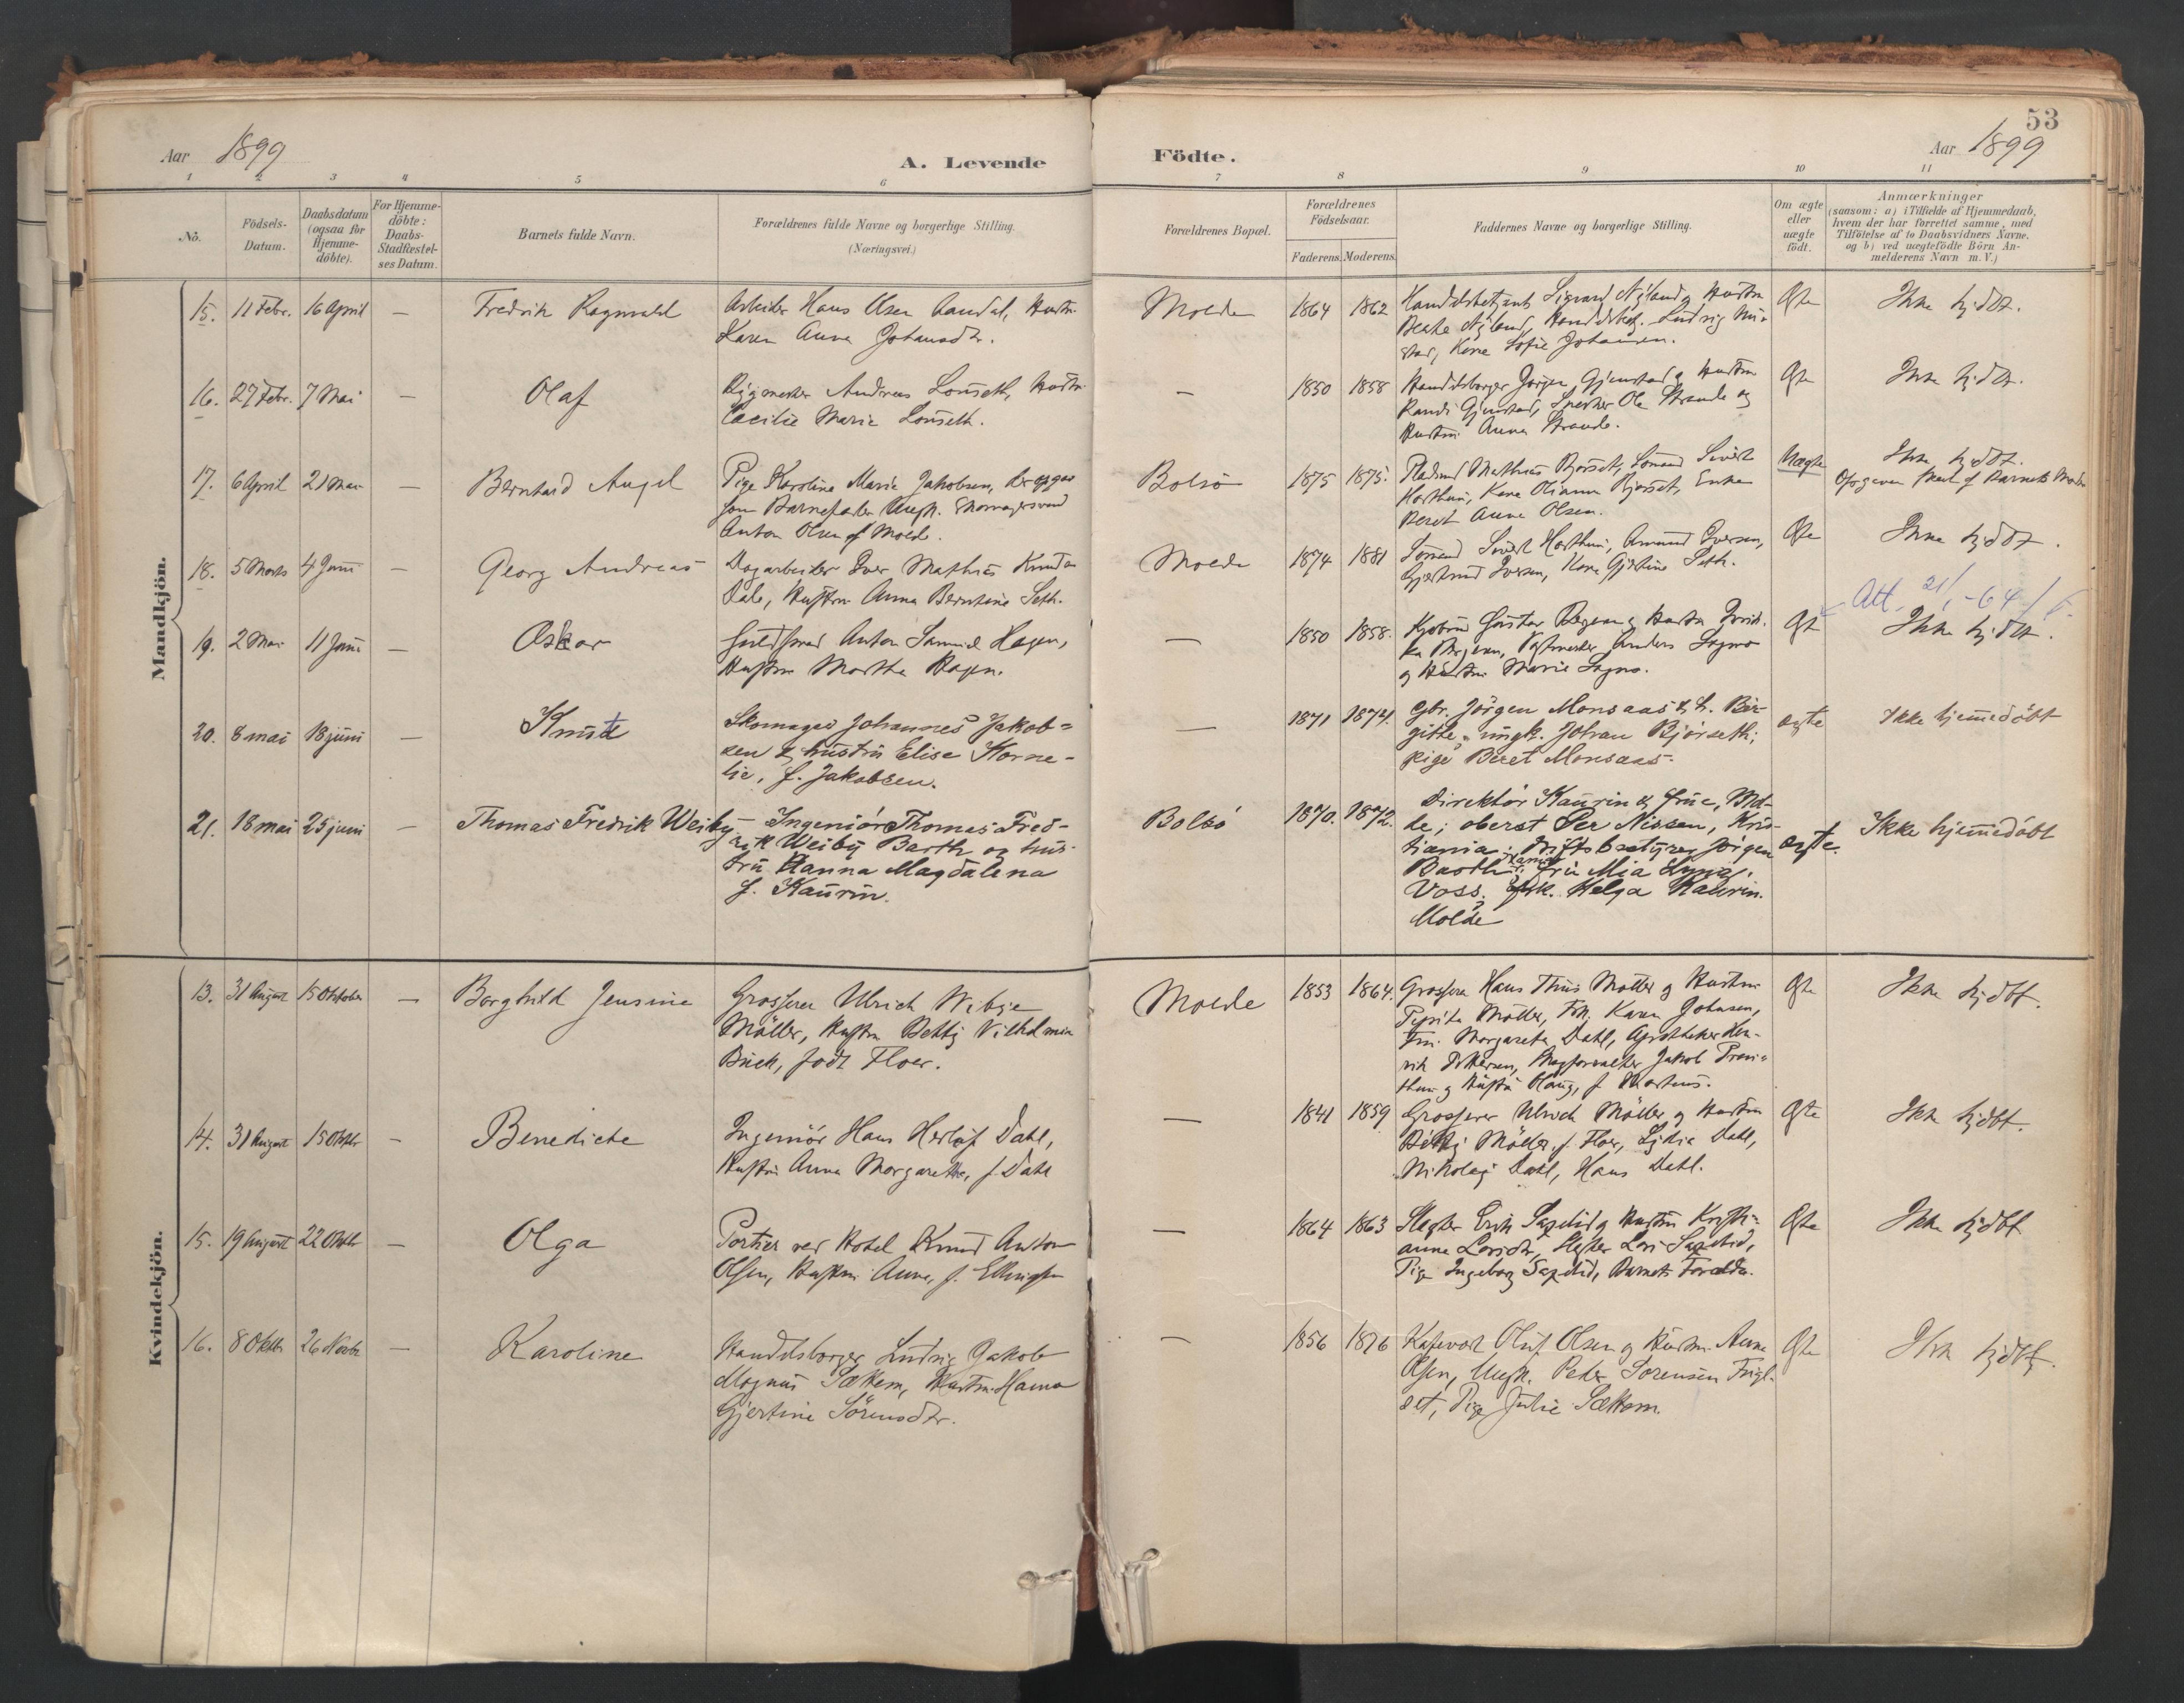 53
Aar 1899
A. Levende
Födte.
Aar 1899
1 2 3 4 5 6 7 8 9 10 11
Nö.
Födsels-Datum.
Daabsdatum (ogsaa for Hjemme-döbte).
For Hjemme-döbte: Daabs-Stadfæstel-ses Datum.
Barnets fulde Navn.
Forældrenes fulde Navne og borgerlige Stilling. (Næringsvei.)
Forældrenes Bopæl.
Forældrenes Födselsaar.
Faderens. Moderens.
Faddernes Navne og borgerlige Stilling.
Om ægte eller uægte födt.
Anmærkninger
(saasom: a) i Tilfælde af Hjemmedaab,
hvem der har forrettet samme, med
Tilföielse af to Daabsvidners Navne,
og b) ved uægtefödte Börn An-
melderens Navn m. V.)
Mandkjön.
15. 11 Febr. 16 April — Fredrik Ragnvald
Arbeider Hans Olsen Aandal, Hustru
Karen Anna Johansdtr.
Molde 1864 1862
Beate Nyland, Ludvig
Kone Sofie Johansen.
Ægte
Ikke hjdbt.
16. 27 Febr. 7 Mai — Olaf
Andreas Lönseth, Hustru
Cecilie Marie Lönseth.
— 1850 1858
Handelsborger Jörgen Gjenstad og Hustru
Randi Gjenstad, Snedker Ole Strande og
Hustru Anna Strande.
Ægte
Ikke hjdbt.
17. 6 April 21 Mai Bernhard Angel
Pige Karoline Marie Jakobsen, der opgav
som Barnefader Ungk. Skomagersvend
Anton Olsen af Molde.
Bolsö 1875 1875.
Mathias Björset, Sömand Sivert
Kone Olianna Björset, Enke
Beret Anna Olsen.
Uægte
Ikke hjdbt.
Opgiven af Barnets Moder
18. 5 Marts 4 Juni — Georg Andreas
Dagarbeider Iver Mathias Knudsen
Dale, Hustru Anna Berntine Seth.
Molde 1874 1881
Sömand Sivert Amund Iversen,
Gjertrud Iversen, Kone Gjertine Seth.
Ægte
Ikke hjdbt.
Att. 21/1-64
19. 2 Mai 11 Juni — Oskar
Guldsmed Anton Samuel Hagen,
Hustru Martha Hagen.
— 1850 1858.
Gustav og Hustru
Anders Sogno
og Hustru Marie Sogno.
Ægte
Ikke hjdbt.
20. 8 mai 18 juni — Knut
Skomager Johannes Jakob=
sen & hustru Elise Korne-
lie, f. Jakobsen.
— 1871 1874.
Gbr. Jörgen Monsaas & h. Bir-
gitte, ungk. Johan Björseth;
pige Beret Monsaas.
ægte
Ikke hjemmedöbt
21. 18 mai 25 juni — Thomas Fredrik Weiby
Ingeniör Thomas Fred-
rik Weiby Barth og hus-
tru Hanna Magdalena
f. Kaurin.
Bolsö 1870. 1872.
Direktör Kaurin & frue, Mol-
de; oberst Per Nissen, Kris-
tiania; Driftsbestyrer Jörgen
Barth; fru Mia
Voss. frk. Helga Kaurin.
Molde
ægte.
Ikke hjemmedöbt
Kvindekjön.
13. 31 August 15 Oktober — Borghild Jensine
Grosserer Ulrich Wibye
Möller, Hustru Betty Vilhelmine
Buck, födt Floer.
Molde 1853 1864.
Grosserer Hans Thiis Möller og Hustru
Pepita Möller, Frk. Karen Johnsen,
Fru Margareta Dahl, Apotheker Hen-
rik Jakob
Ægte
Ikke hjdbt.
14. 31 August 15 Oktbr — Benedicte
Ingeniör Hans Herlof Dahl,
Hustru Anna Margarethe, f. Dahl
— 1841 1859
Grosserer Ulrich Möller og Hustru
Betty Möller f. Floer, Lydia Dahl,
Nikolay Dahl, Hans Dahl.
Ægte
Ikke hjdbt.
15. 19 August 22 Oktbr — Olga
Portier ved Hotel Knud Anton
Olsen, Hustru Anna, f. Ellingsen
— 1864 1863
Slagter Erik og Hustru
anna Larsdtr, Slagter Lars
Pige Ingeborg Barnets Forældre.
Ægte
Ikke hjdbt
16. 8 Oktbr 26 Novbr — Karoline
Handelsborger Ludvig Jakob
Magnus Sættem, Hustru Hanna
Gjertine Sörensdtr.
— 1856 1876
Oluf Olsen og Hustru Anna
Olsen, Ungk. Peder Sörensen
Pige Julie Sættem.
Ægte
Ikke hjdbt.